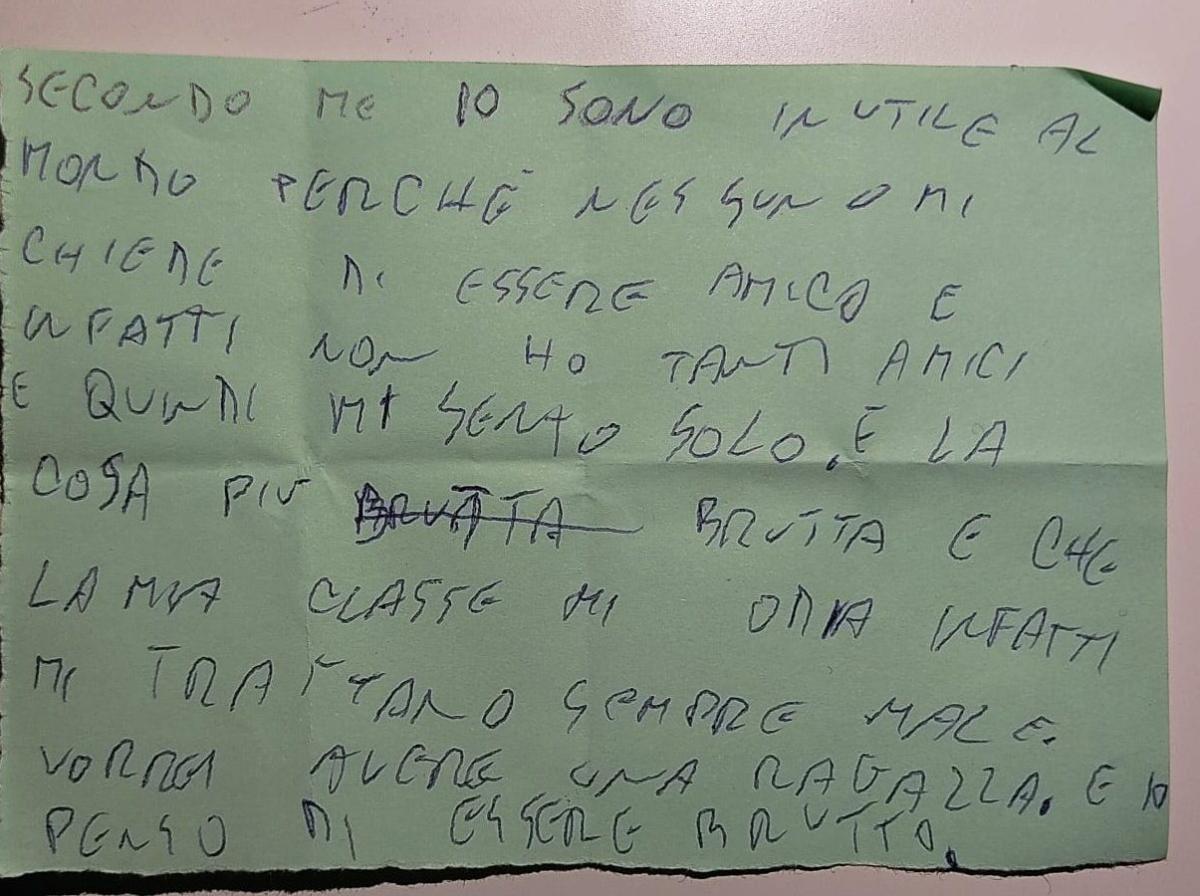 SECONDO ME IO SONO INUTILE AL
MONDO PERCHÈ NESSUNO MI
CHIEDE DI ESSERE AMICO E
INFATTI NON HO TANTI AMICI
E QUINDI MI SENTO SOLO. È LA
COSA PIU BRUTTA BRUTTA E CHE
LA MIA CLASSE MI ODIA INFATTI
MI TRATTANO SEMPRE MALE.
VORREI AVERE UNA RAGAZZA. E IO
PENSO DI ESSERE BRUTTO.